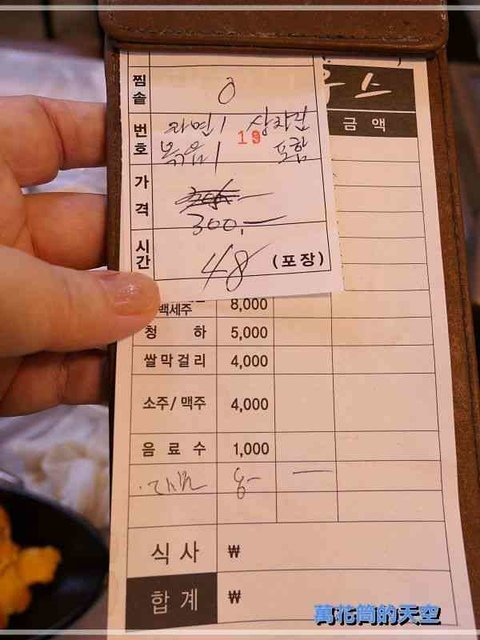 찜솥 0
금액
번호 라면1 상차림
19
볶음1 포함
가격
300,—
시간 48 (포장)
백세주 8,000
청 하 5,000
쌀막걸리 4,000
소주/맥주 4,000
음료수 1,000
식사 ₩
합계 ₩
萬花筒的天空